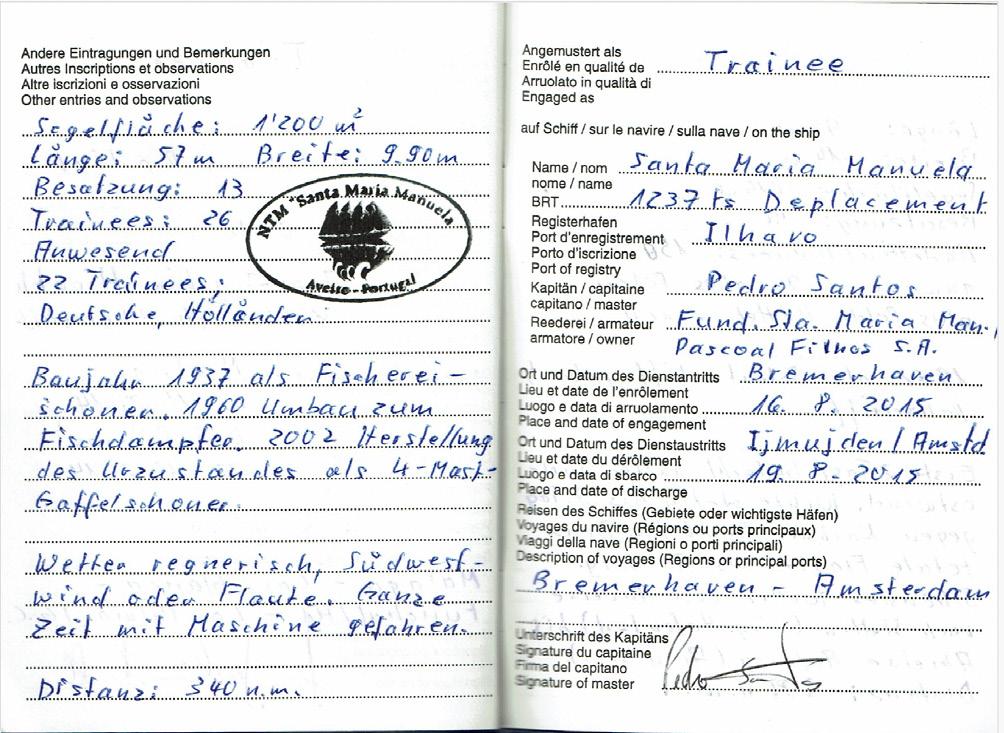 Andere Eintragungen und Bemerkungen
Autres Inscriptions et observations
Altre iscrizioni e osservazioni
Other entries and observations
Segelfläche: 1'200 m²
Länge: 57m Breite: 9.90m
Besatzung: 13
Trainees: 26
Anwesend
22 Trainees;
Deutsche, Holländer
NTM "Santa Maria Manuela
Aveiro - Portugal
Baujahr 1937 als Fischerei-
schoner. 1960 Umbau zum
Fischdampfer. 2002 Herstellung
des Urzustandes als 4-Mast-
Gaffelschoner.
Wetter regnerisch, Südwest-
wind oder Flaute. Ganze
Zeit mit Maschine gefahren.
Distanz: 340 n.m.
Angemustert als
Enrôlé en qualité de Trainee
Arruolato in qualità di
Engaged as
auf Schiff / sur le navire / sulla nave / on the ship
Name / nom Santa Maria Manuela
nome / name
BRT 1237 ts Deplacement
Registerhafen
Port d'enregistrement Ilhavo
Porto d'iscrizione
Port of registry
Kapitän / capitaine Pedro Santos
capitano / master
Reederei / armateur Fund. Sta. Maria Man.,
armatore / owner Pascoal Filhos S.A.
Ort und Datum des Dienstantritts Bremerhaven
Lieu et date de l'enrôlement
Luogo e data di arruolamento 16. 8. 2015
Place and date of engagement
Ort und Datum des Dienstaustritts Ijmujden / Amstd.
Lieu et date du dérôlement
Luogo e data di sbarco 19. 8. 2015
Place and date of discharge
Reisen des Schiffes (Gebiete oder wichtigste Häfen)
Voyages du navire (Régions ou ports principaux)
Viaggi della nave (Regioni o porti principali)
Description of voyages (Regions or principal ports)
Bremerhaven - Amsterdam
Unterschrift des Kapitäns
Signature du capitaine
Firma del capitano Pedro Santos
Signature of master